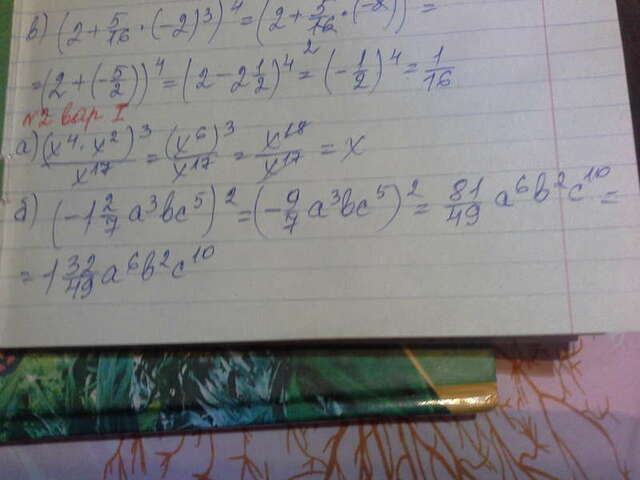 в) (2 + 5/16 · (-2)³)⁴ = (2 + 5/16 · (-8))⁴ =
= (2/2 + (-5/2))⁴ = (2 - 2 1/2)⁴ = (-1/2)⁴ = 1/16
№2 вар I
а) (x⁴ · x²)³/x¹⁷ = (x⁶)³/x¹⁷ = x¹⁸/x¹⁷ = x
б) (-1 2/7 a³bc⁵)² = (-9/7 a³bc⁵)² = 81/49 a⁶b²c¹⁰ =
= 1 32/49 a⁶b²c¹⁰